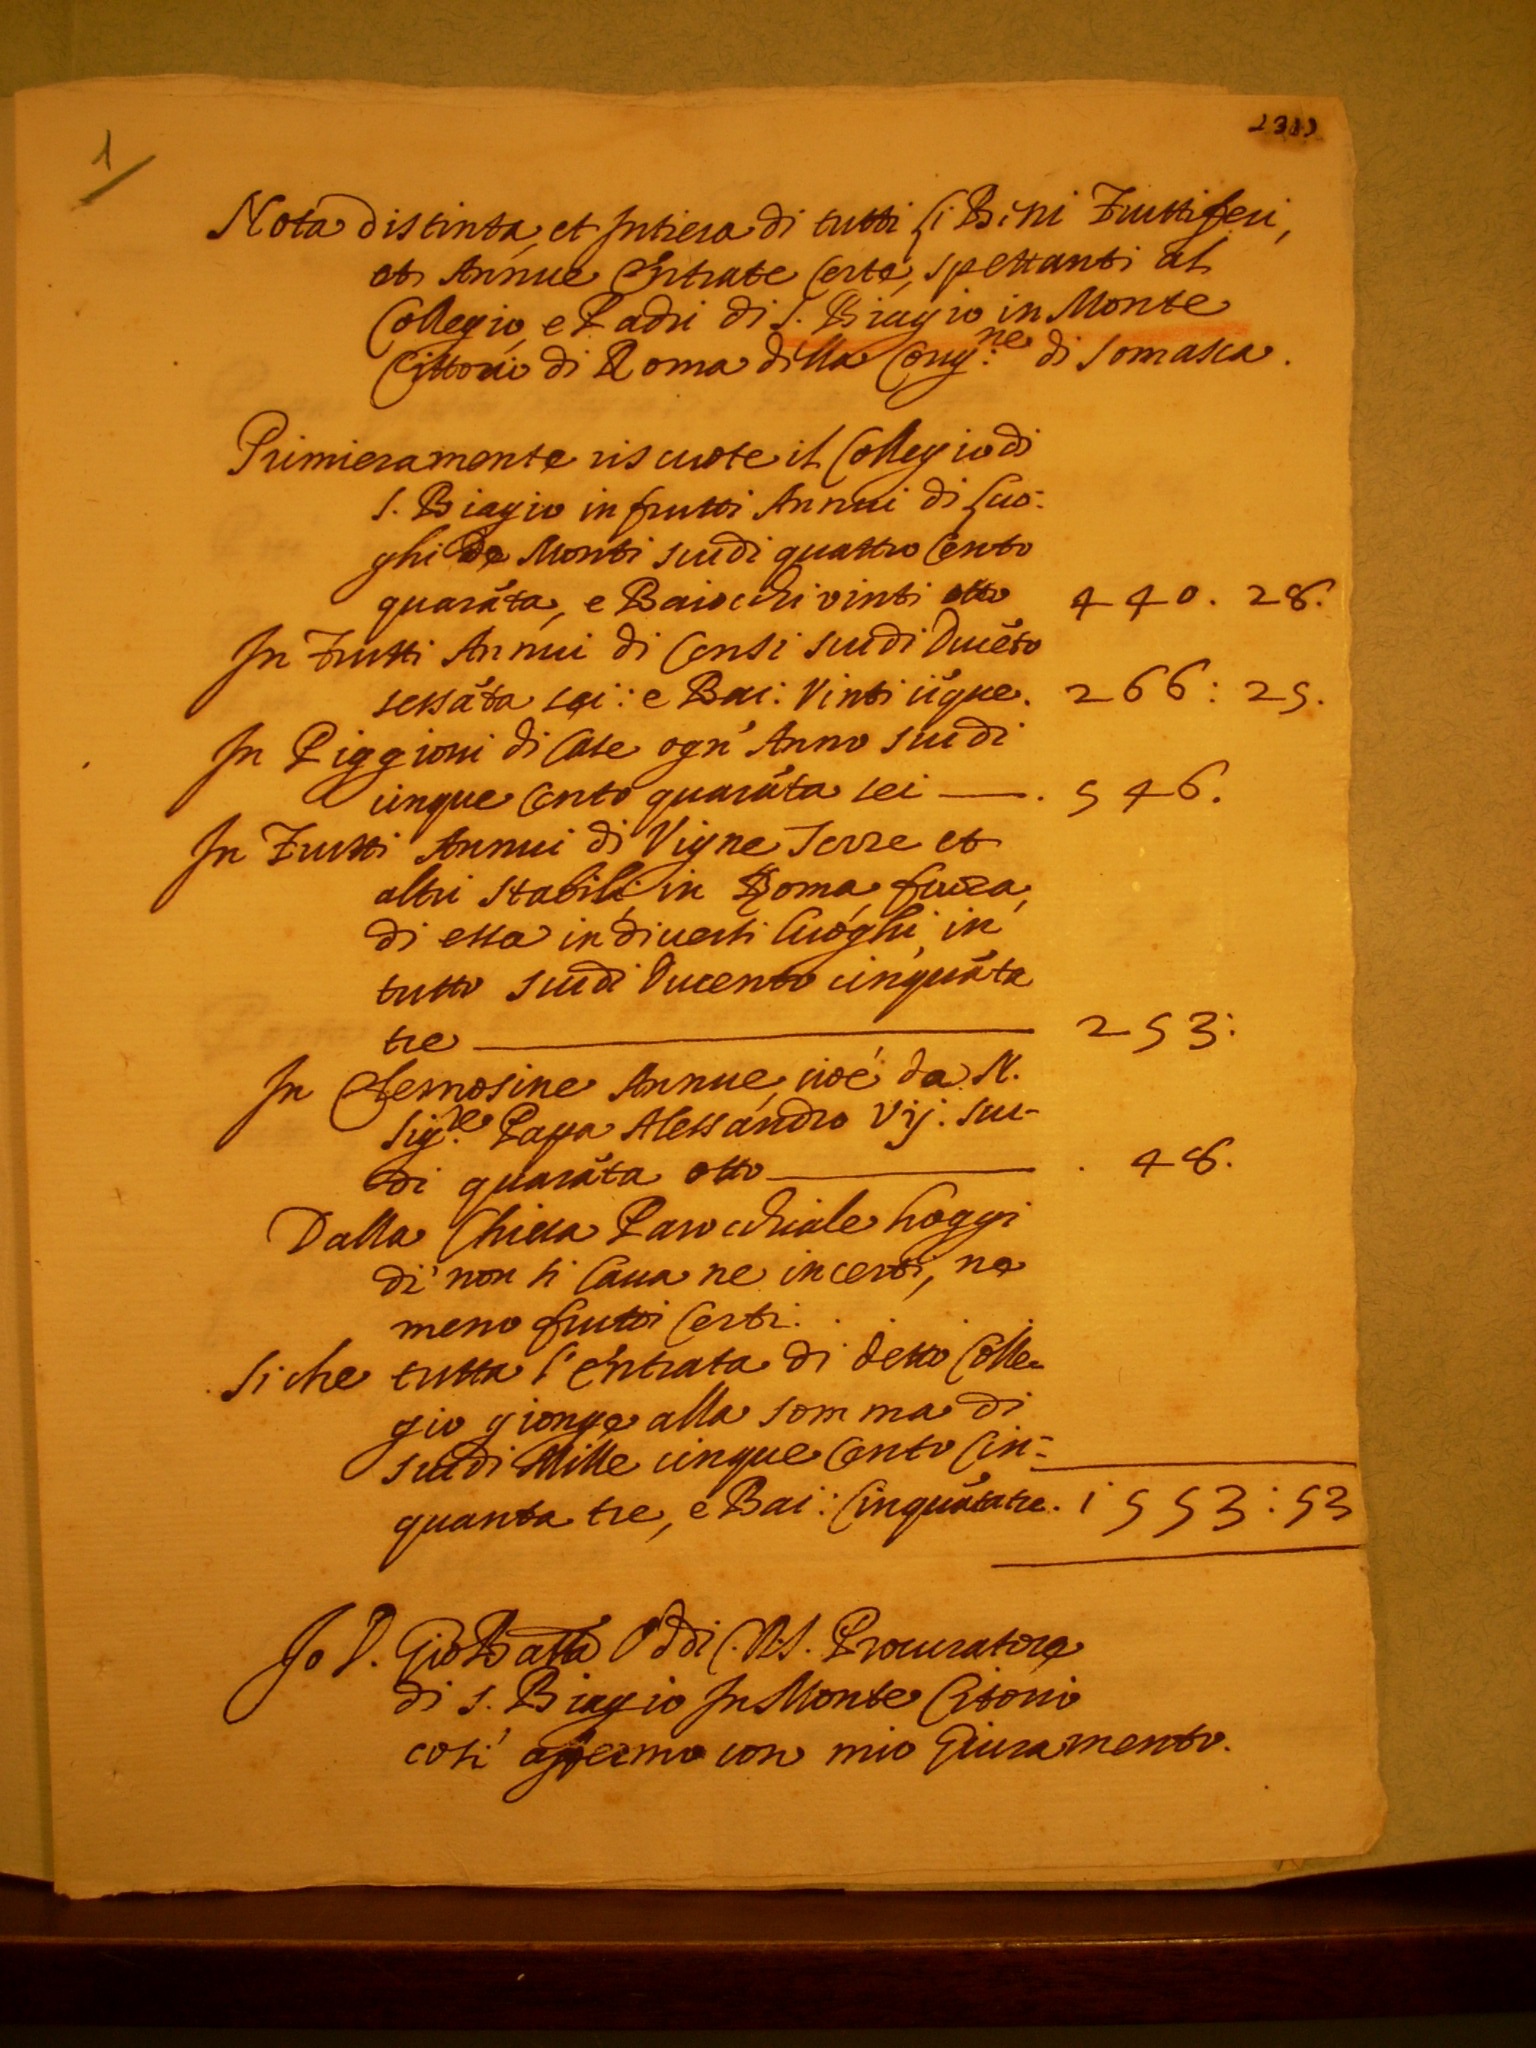 1
Nota distinta, et Intiera di tutti li Beni Fruttiferi,
et Annue Entrate Certe, spettanti al
Collegio, e Padri di S. Biagio in Monte
Cittorio di Roma della Cong:ne di Somasca.
Primieramente riscuote il Collegio di
S. Biagio in frutti Annui di Luo-
ghi de Monti scudi quattro Cento
quarãta, e Baiocchi vinti otto 440. 28.
In Frutti Annui di Censi scudi Ducẽto
sessãta sei: e Bai: Vinti cĩque. 266: 25.
In Piggioni di Case ogn' Anno scudi
cinque Cento quarãta sei — . 546.
In Frutti Annui di Vigne Terre et
altri stabili in Roma, fuora,
di essa in diversi Luoghi in
tutto scudi Ducento cinquãta
tre — 253:
In Elemosine Annue, cioè da N.
Sig:re Papa Alessandro Vij. scu-
di quarãta otto — . 48.
Dalla Chiesa Parocchiale hoggi
dì non si Caua ne incerti, ne
meno frutti Certi.
Si che tutta l'Entrata di detto Colle-
gio gionge alla somma di
scudi Mille cinque Cento Cin-
quanta tre, e Bai: Cinquãtatre. 1553:53
Io D. Gio Batta Oddi C. R. S. Procuratore
di S. Biagio In Monte Citorio
così affermo con mio Giuramento.